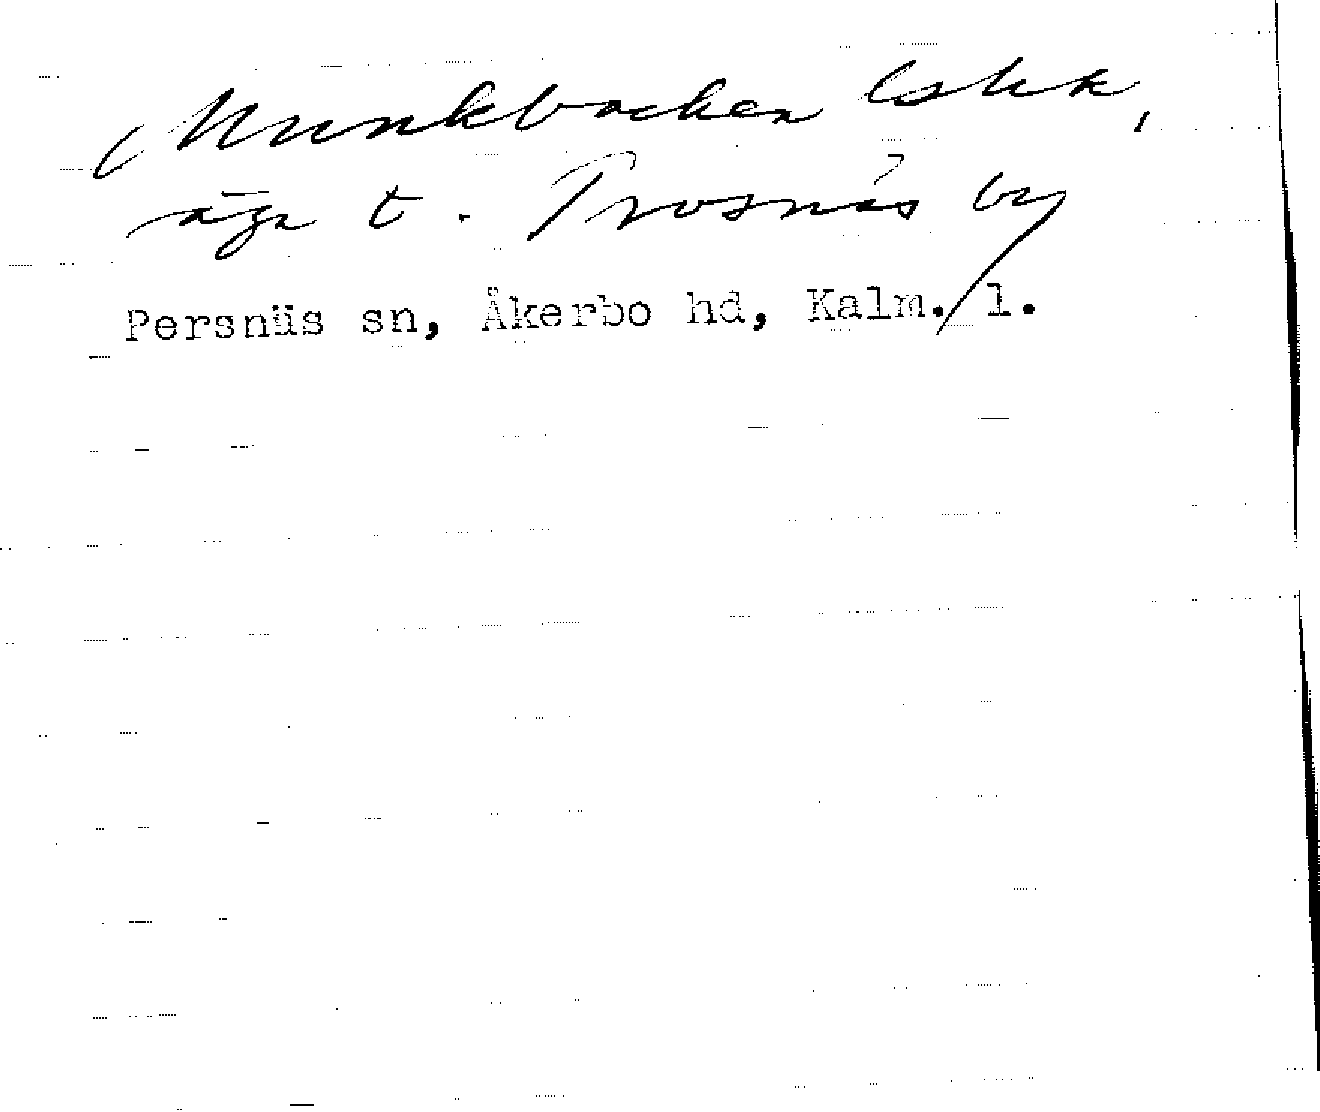 Munkbacken lshk,
äga t. Trosnäs by
Persnäs sn, Åkerbo hd, Kalm. l.